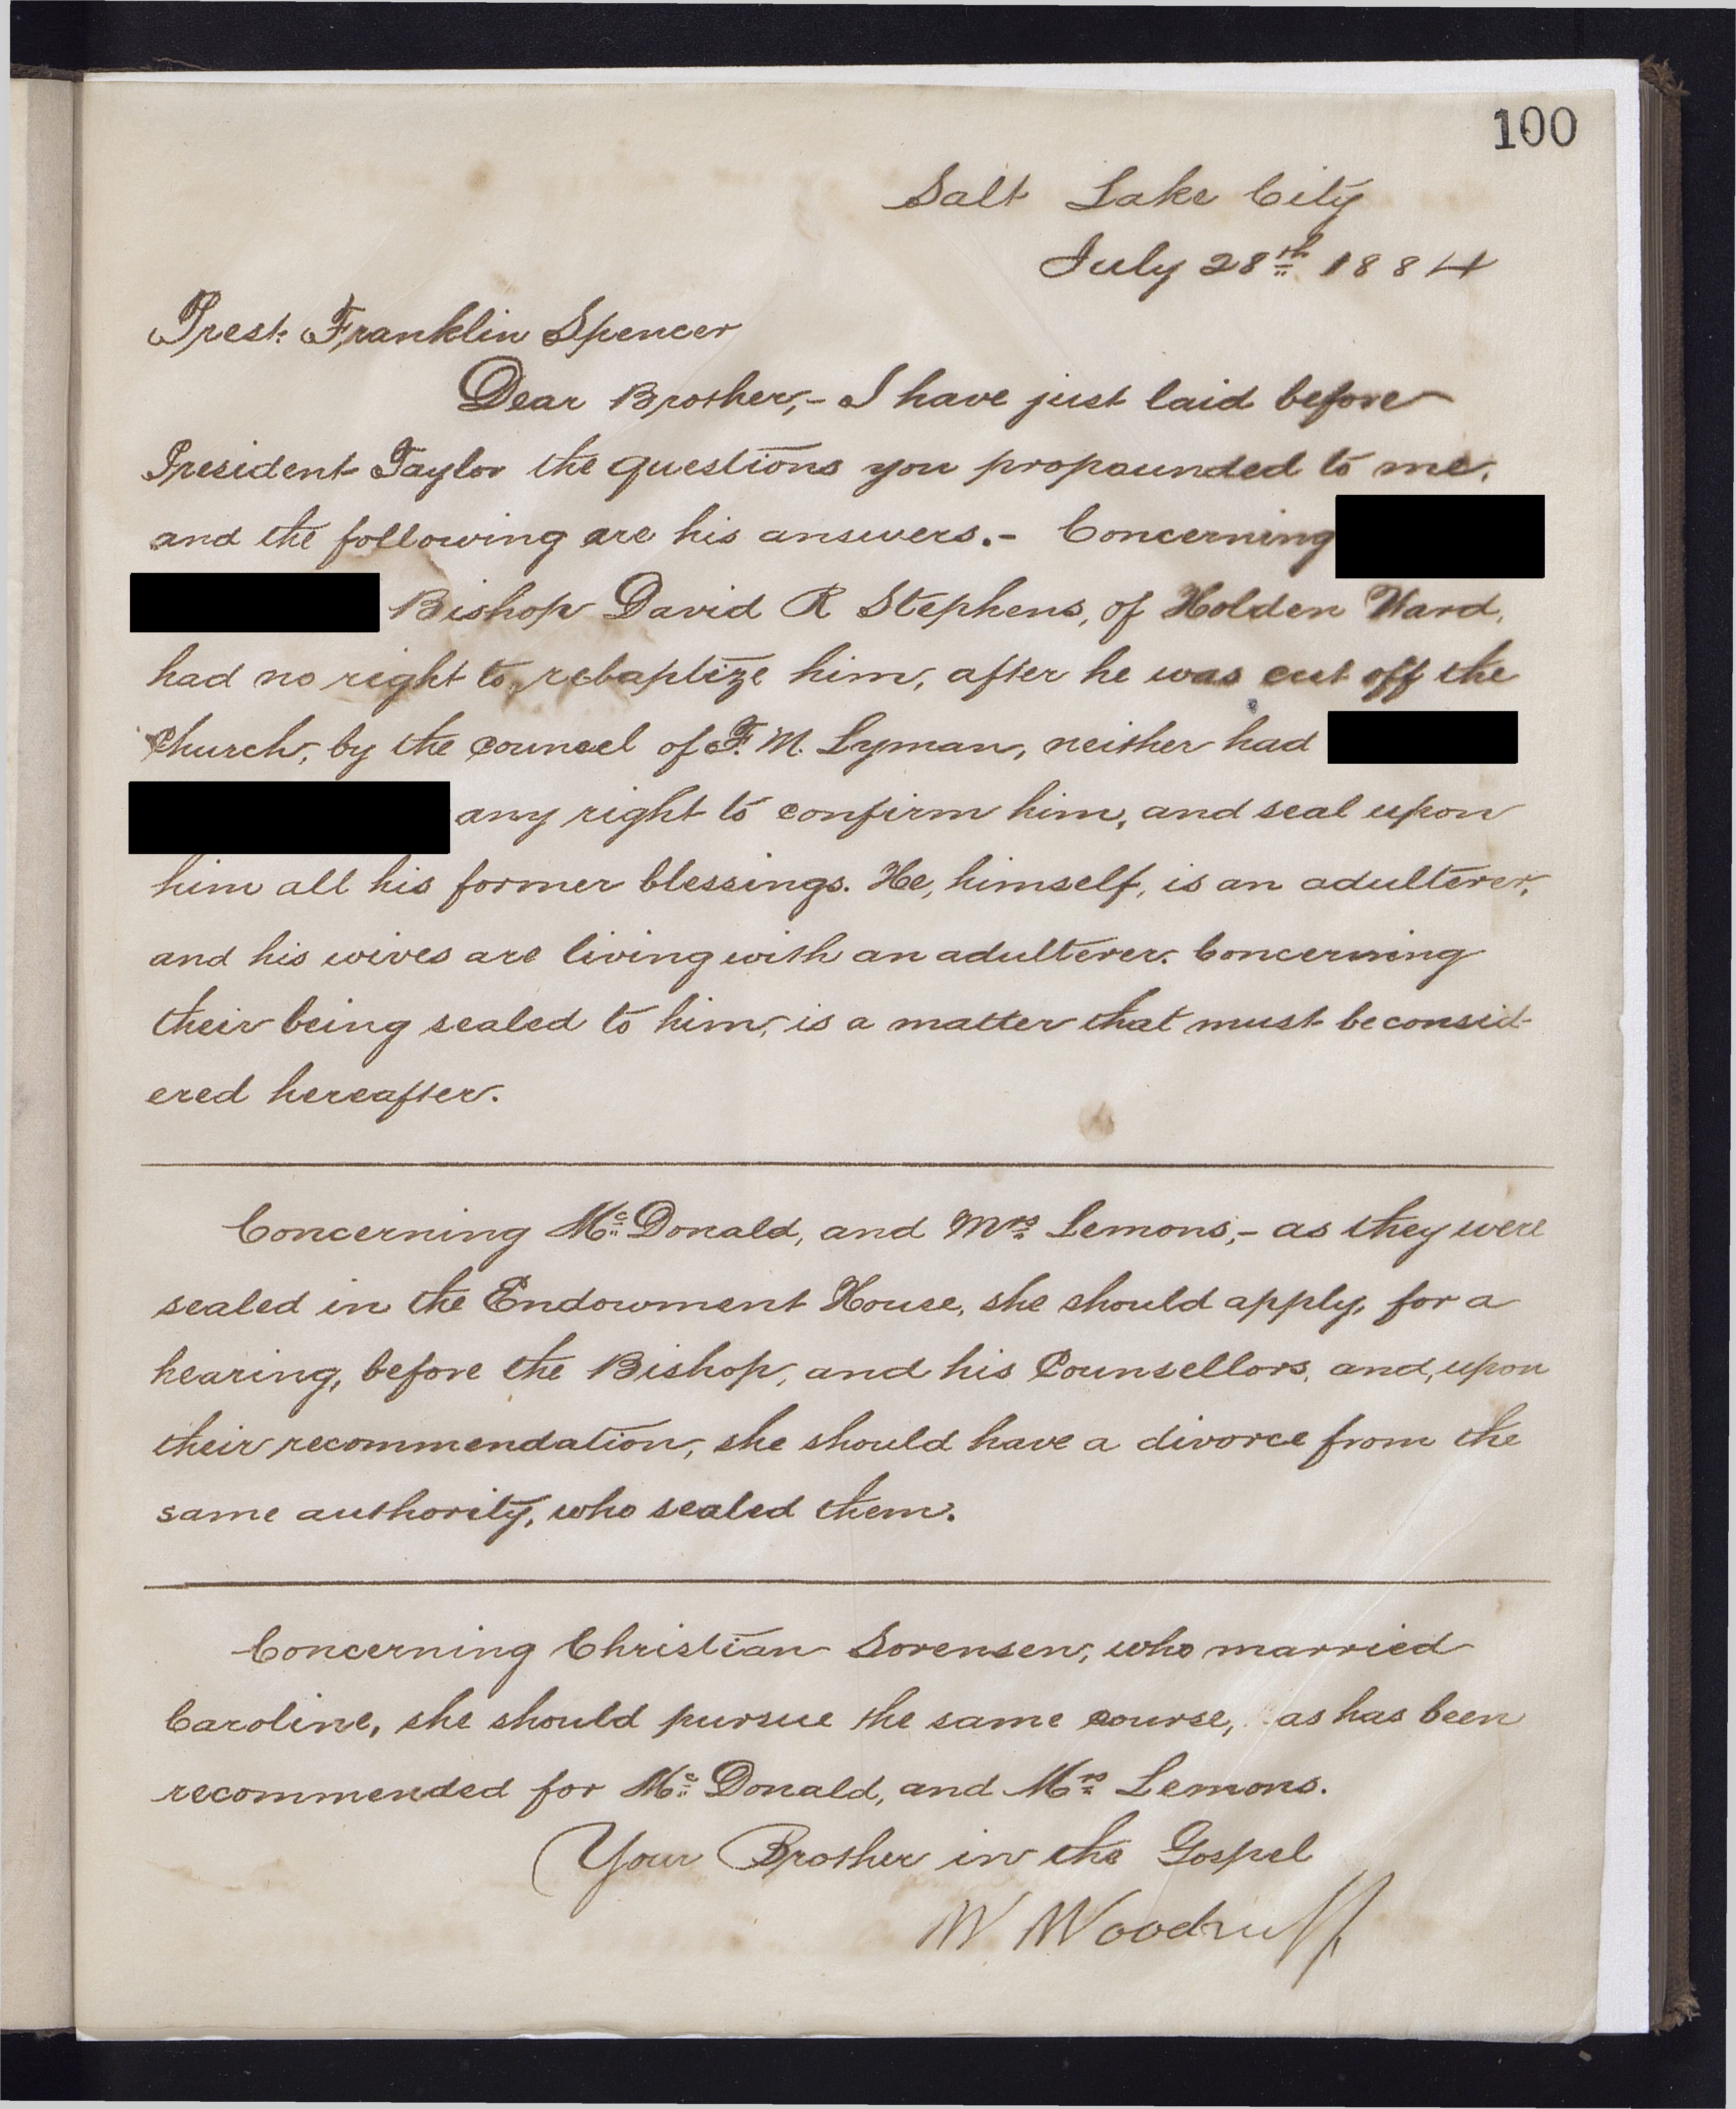 100
Salt Lake City
July 28th 1884
Prest. Franklin Spencer
Dear Brother,- I have just laid before
President Taylor the questions you propounded to me,
and the following are his answers.- Concerning
Bishop David R Stephens, of Holden Ward,
had no right to rebaptize him, after he was cut off the
Church, by the councel of F. M. Lyman, neither had
any right to confirm him, and seal upon
him all his former blessings. He, himself, is an adulterer,
and his wives are living with an adulterer. Concerning
their being sealed to him, is a matter that must be consid-
ered hereafter.
Concerning Mc Donald, and Mrs Lemons,- as they were
sealed in the Endowment House, she should apply, for a
hearing, before the Bishop, and his Counsellors, and, upon
their recommendation, she should have a divorce from the
same authority, who sealed them.
Concerning Christian Sorensen, who married
Caroline, she should pursue the same course, as has been
recommended for Mc Donald, and Mrs Lemons.
Your Brother in the Gospel
W Woodruff